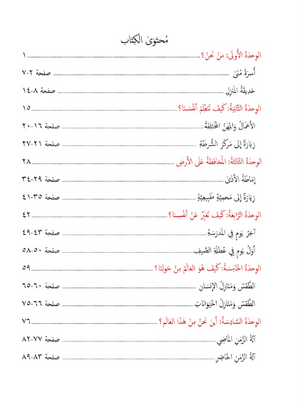 مُحتَوَى الكِتَاب
الوِحدَةُ الأُولَى: مِنْ نَحنُ؟ ١
أُسرَةُ مُنَى صفحة ٢-٧
حَدِيقَةُ المَنْزِلِ صفحة ٨-١٤
الوِحدَةُ الثَّانِيَةُ: كَيْفَ نُنَظِّمُ أَنْفُسَنَا؟ ١٥
الأَعْمَالُ وَالمِهَنُ المُخْتَلِفَةُ صفحة ١٦-٢٠
زِيَارَةٌ إِلَى مَرْكَزِ الشُّرطَةِ صفحة ٢١-٢٧
الوِحدَةُ الثَّالِثَةُ: المُحَافَظَةُ عَلَى الأَرضِ ٢٨
إِمَاطَةُ الأَذَى صفحة ٢٩-٣٤
زِيَارَةٌ إِلَى مَحمِيَّةٍ طَبِيعِيَّةٍ صفحة ٣٥-٤١
الوِحدَةُ الرَّابِعَةُ: كَيْفَ نُعَبِّرُ عَنْ أَنْفُسِنَا؟ ٤٢
آخِرُ يَومٍ فِي المَدرَسَةِ صفحة ٤٣-٤٩
أَوَّلُ يَومٍ فِي عُطلَةِ الصَّيفِ صفحة ٥٠-٥٨
الوِحدَةُ الخَامِسَةُ: كَيْفَ هُوَ العَالَمُ مِنْ حَولِنَا؟ ٥٩
الطَّقْسُ وَمَنَازِلُ الإِنسَانِ صفحة ٦٠-٦٥
الطَّقْسُ وَمَنَازِلُ الحَيَوَانَاتِ صفحة ٦٦-٧٥
الوِحدَةُ السَّادِسَةُ: أَينَ نَحنُ مِنْ هَذَا العَالَمِ؟ ٧٦
آلَةُ الزَّمَنِ المَاضِي صفحة ٧٧-٨٢
آلَةُ الزَّمَنِ الحَاضِرِ صفحة ٨٣-٨٩